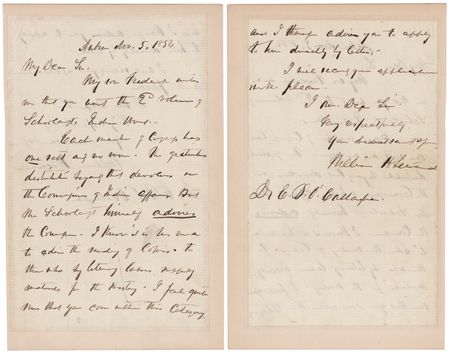 Auburn Nov. 5. 1854
My Dear Sir.
My son Frederick writes
me that you want the 2d volume of
Schoolcrafts Indian Work.
Each member of Congress has
one sett and no more. The gratuitous
distribution beyond this devolves on
the Commissioner of Indian Affairs. But
Mr Schoolcraft himself advises
the Commissioner. I know it is his
to the sending of Copies to
those who by literary labors supply
materials for the History. I feel quite
sure that you come within this Category
and I therefore advise you to apply
to him directly by letter.
I will second your application
with pleasure.
I am Dear Sir
Very respectfully
Your
William H Seward
Dr E. B. O'Callaghan